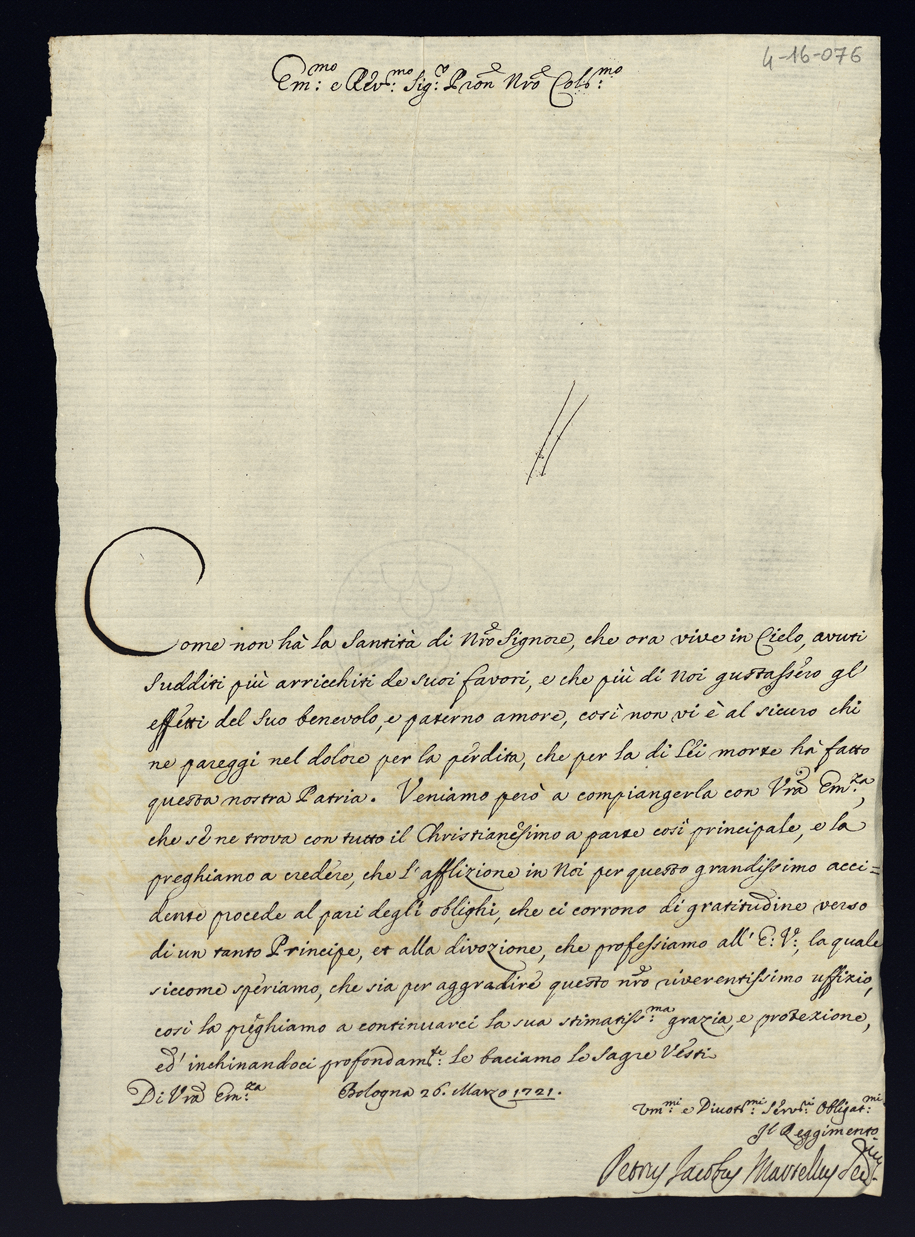 4-16-076
Em:mo e Rev:mo Sig:r Pron Nro Col:mo
Come non hà la Santità di Nro Signore, che ora vive in Cielo, avuti
sudditi più arricchiti de suoi favori, e che più di Noi gustassero gl'
effetti del suo benevolo, e paterno amore, così non vi è al sicuro chi
ne pareggi nel dolore per la perdita, che per la di Lei morte hà fatto
questa nostra Patria. Veniamo però a compiangerla con Vra Em:za,
che se ne trova con tutto il Christianesimo a parte così principale, e la
preghiamo a credere, che l'afflizione in Noi per questo grandissimo acci=
dente procede al pari degli oblighi, che ci corrono di gratitudine verso
di un tanto Principe, et alla divozione, che professiamo all' E: V:, la quale
siccome speriamo, che sia per aggradire questo nro riverentissimo uffizio,
così la preghiamo a continuarci la sua stimatiss:ma grazia, e protezione,
ed' inchinandoci profondam:te le baciamo le Sagre Vesti
Di Vra Em:za Bologna 26. Marzo 1721.
Um:mi e Divot:mi Serv:ri Obligat:mi
Il Reggimento
Petrus Jacobus Martellus Sec: